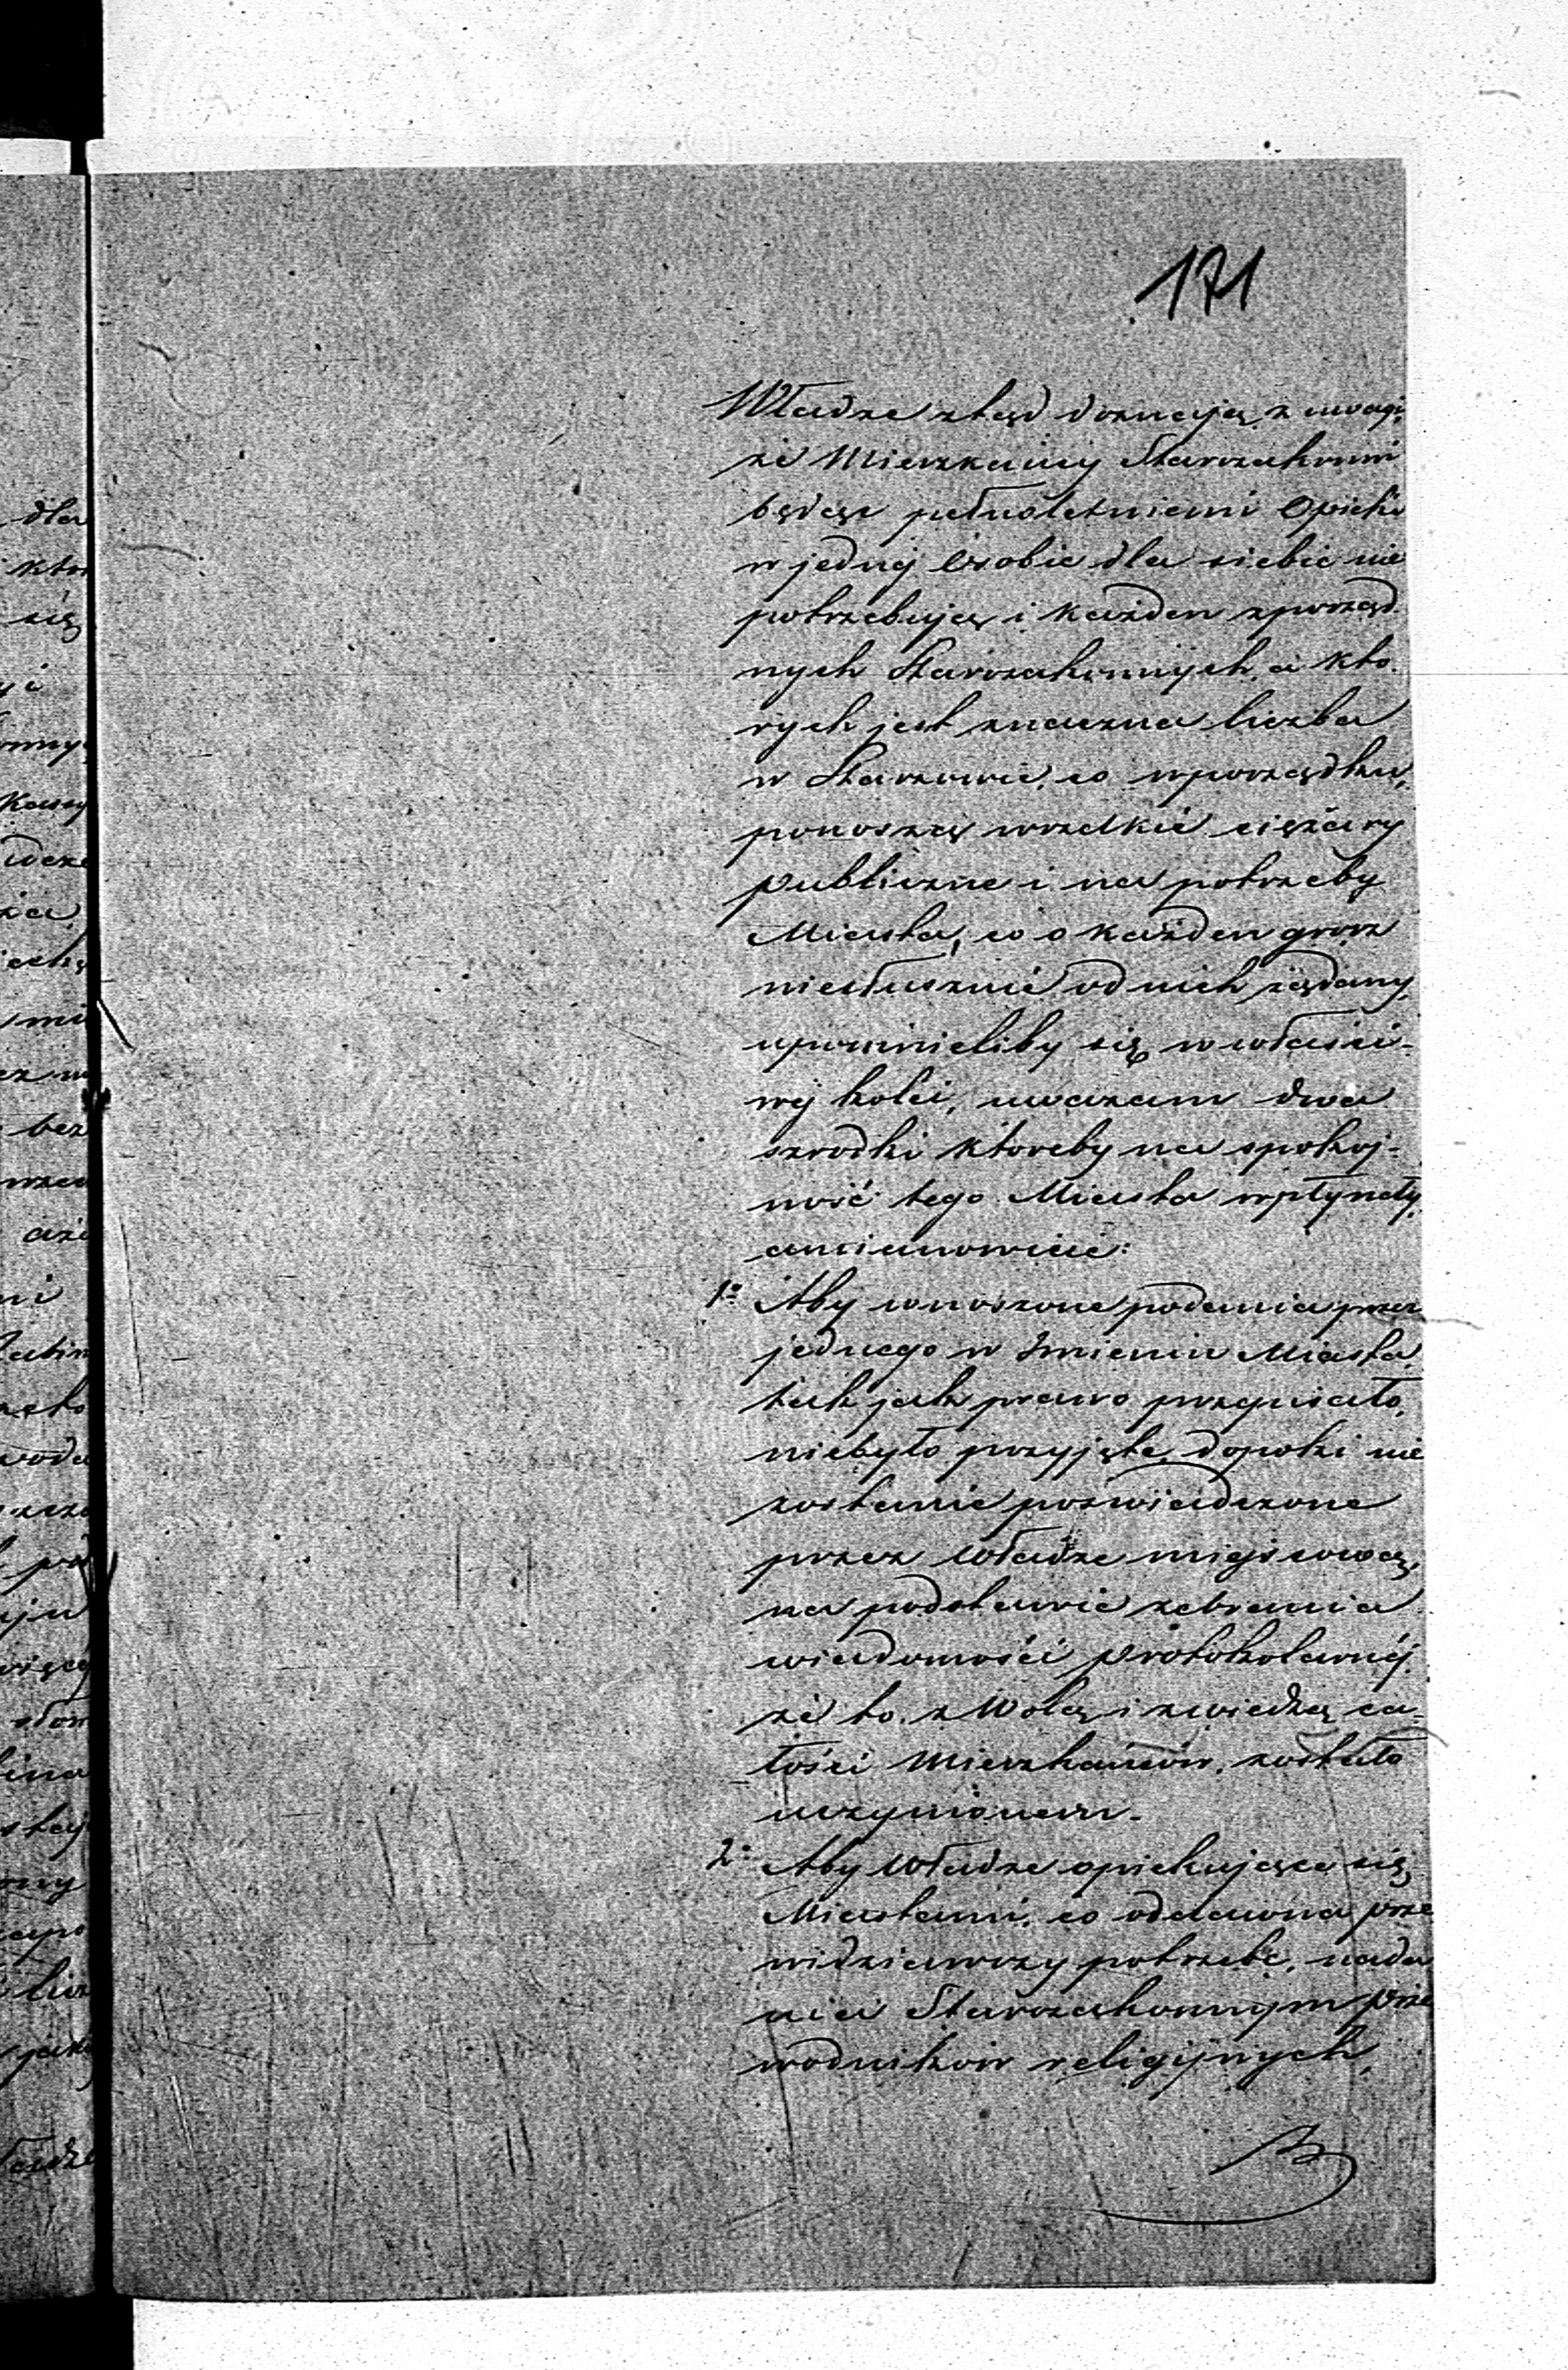 171
Władze ztąd doznają, z uwagi,
że Mieszkańcy Starozakonni
będąc pełnoletniemi Opieki
w jednéj Osobie dla siebie nie
potrzebują i każden zporząd
nych Starozakonnych, a kto
rych jest znaczna liczba
w Staszowie, co wporządku,
ponoszą wszelkie ciężary
publiczne i na potrzeby
Miasta, co o każden grosz
niesłusznie od nich żądany,
upomnieliby się w właści-
wéj kolei, uważam dwa
szrodki ktoreby na spokoj-
ność tego Miasta wpłynęły,
amianowicie:
1o Aby wnoszone podania przez
jednego w Imieniu Miasta,
tak jak prawo przepisało,
niebyło przyjęte, dopoki nie
zostanie poswiadczone
przez Władze miejscową,
na podstawie zebrania
wiadomości protokolarnéj,
że to z Wolą i zwiedzą ca-
łości Mieszkańców, zostało
uczynionem.
2o Aby Władze opiekujące się
Miastami, co oddawna prze
widziawszy potrzebę, nada
nia Starozakonnym prze
wodnikow religijnych,
dla
się
bez